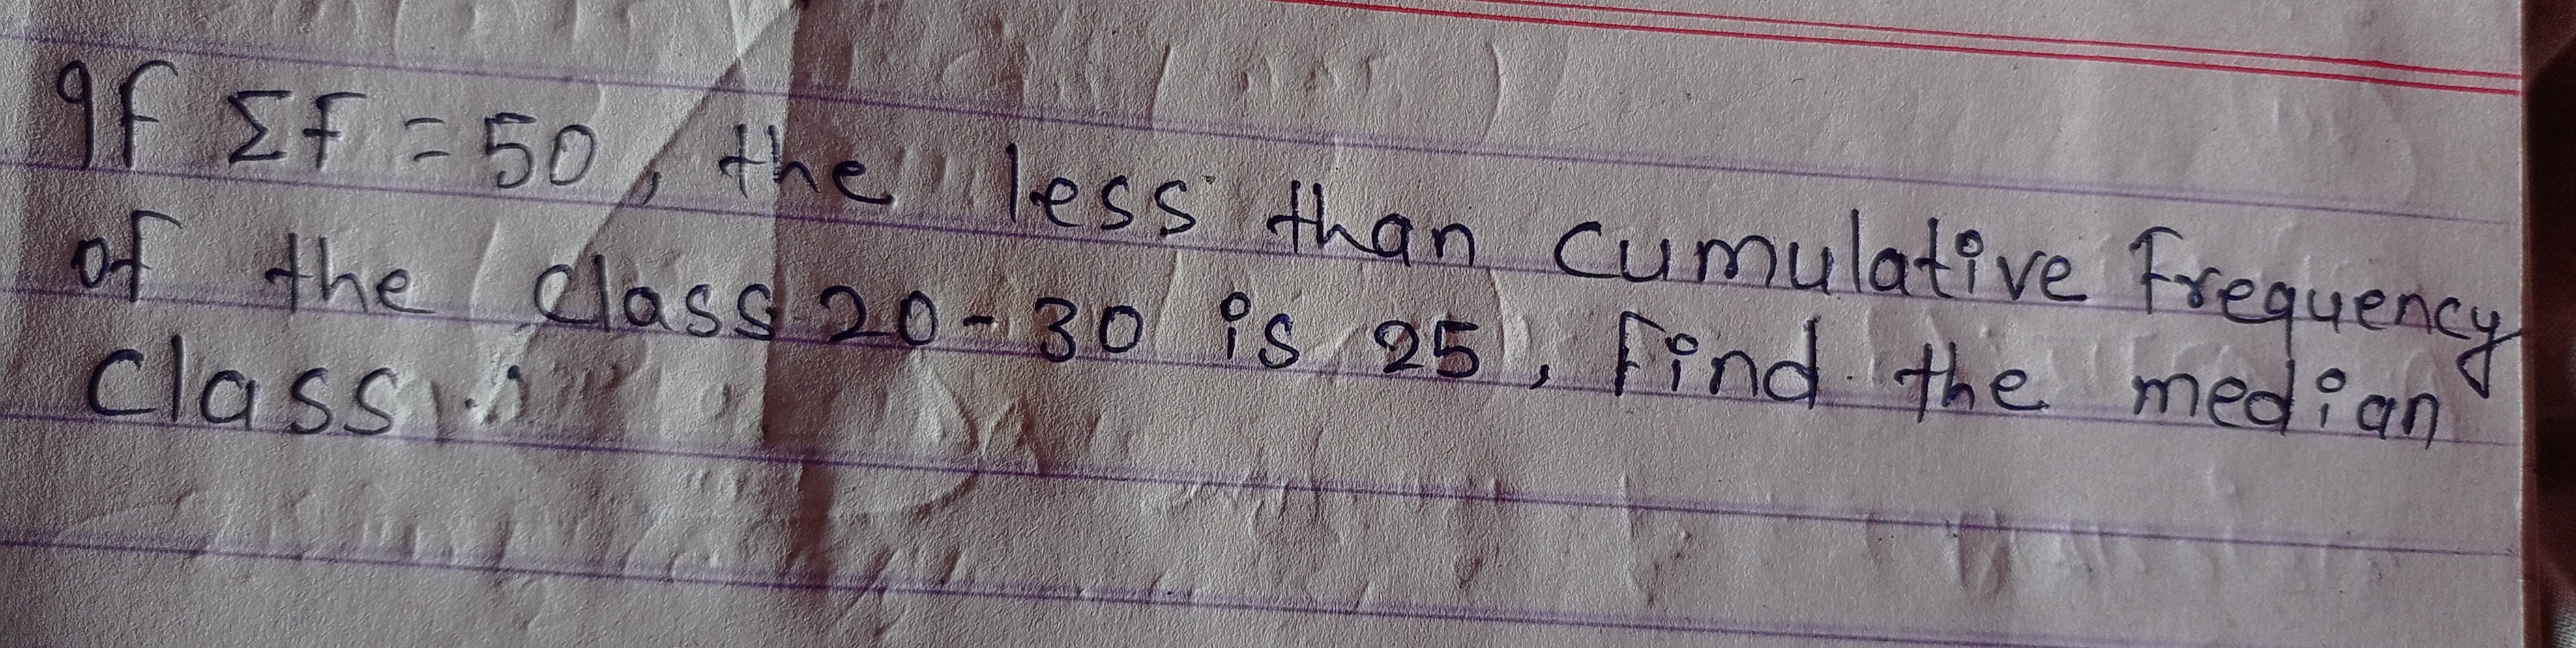 If Σf = 50, the less than cumulative frequency
of the class 20-30 is 25, find the median
class.